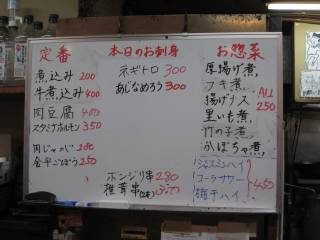 定番
煮込み 200
牛煮込み 400
肉豆腐 400
スタミナホルモン 350
肉じゃが 280
金平ごぼう 250
本日のお刺身
ネギトロ 300
あじなめろう 300
ボンジリ串 280
椎茸串(2本)
お惣菜
厚揚げ煮
フキ煮
揚げナス
里いも煮
竹の子煮
かぼちゃ煮
ALL
250
ジャスミンハイ
コーラサワー
梅チハイ
450